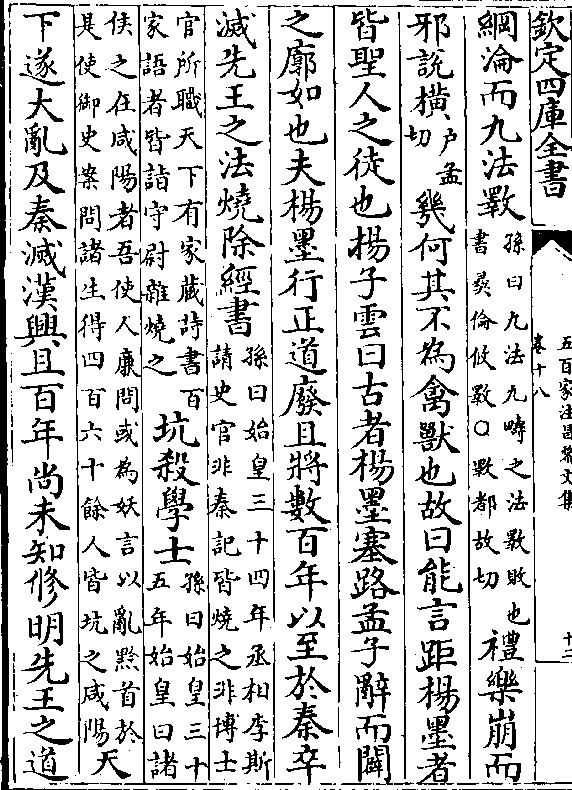 欽定四庫全書
五百家注昌黎文集
卷十八
十二
綱淪而九法斁孫曰九法九疇之法斁敗也書彜倫攸斁○斁都故切禮樂崩而
邪說橫戶孟切幾何其不為禽獸也故曰能言距楊墨者
皆聖人之徒也揚子雲曰古者楊墨塞路孟子辭而闢
之廓如也夫楊墨行正道廢且將數百年以至於秦卒
滅先王之法燒除經書孫曰始皇三十四年丞相李斯請史官非秦記皆燒之非博士
官所職天下有家藏詩書百家語者皆詣守尉雜燒之坑殺學士孫曰始皇三十五年始皇曰諸
侯之在咸陽者吾使人廉問或為妖言以亂黔首於是使御史案問諸生得四百六十餘人皆坑之咸陽天
下遂大亂及秦滅漢興且百年尚未知修明先王之道